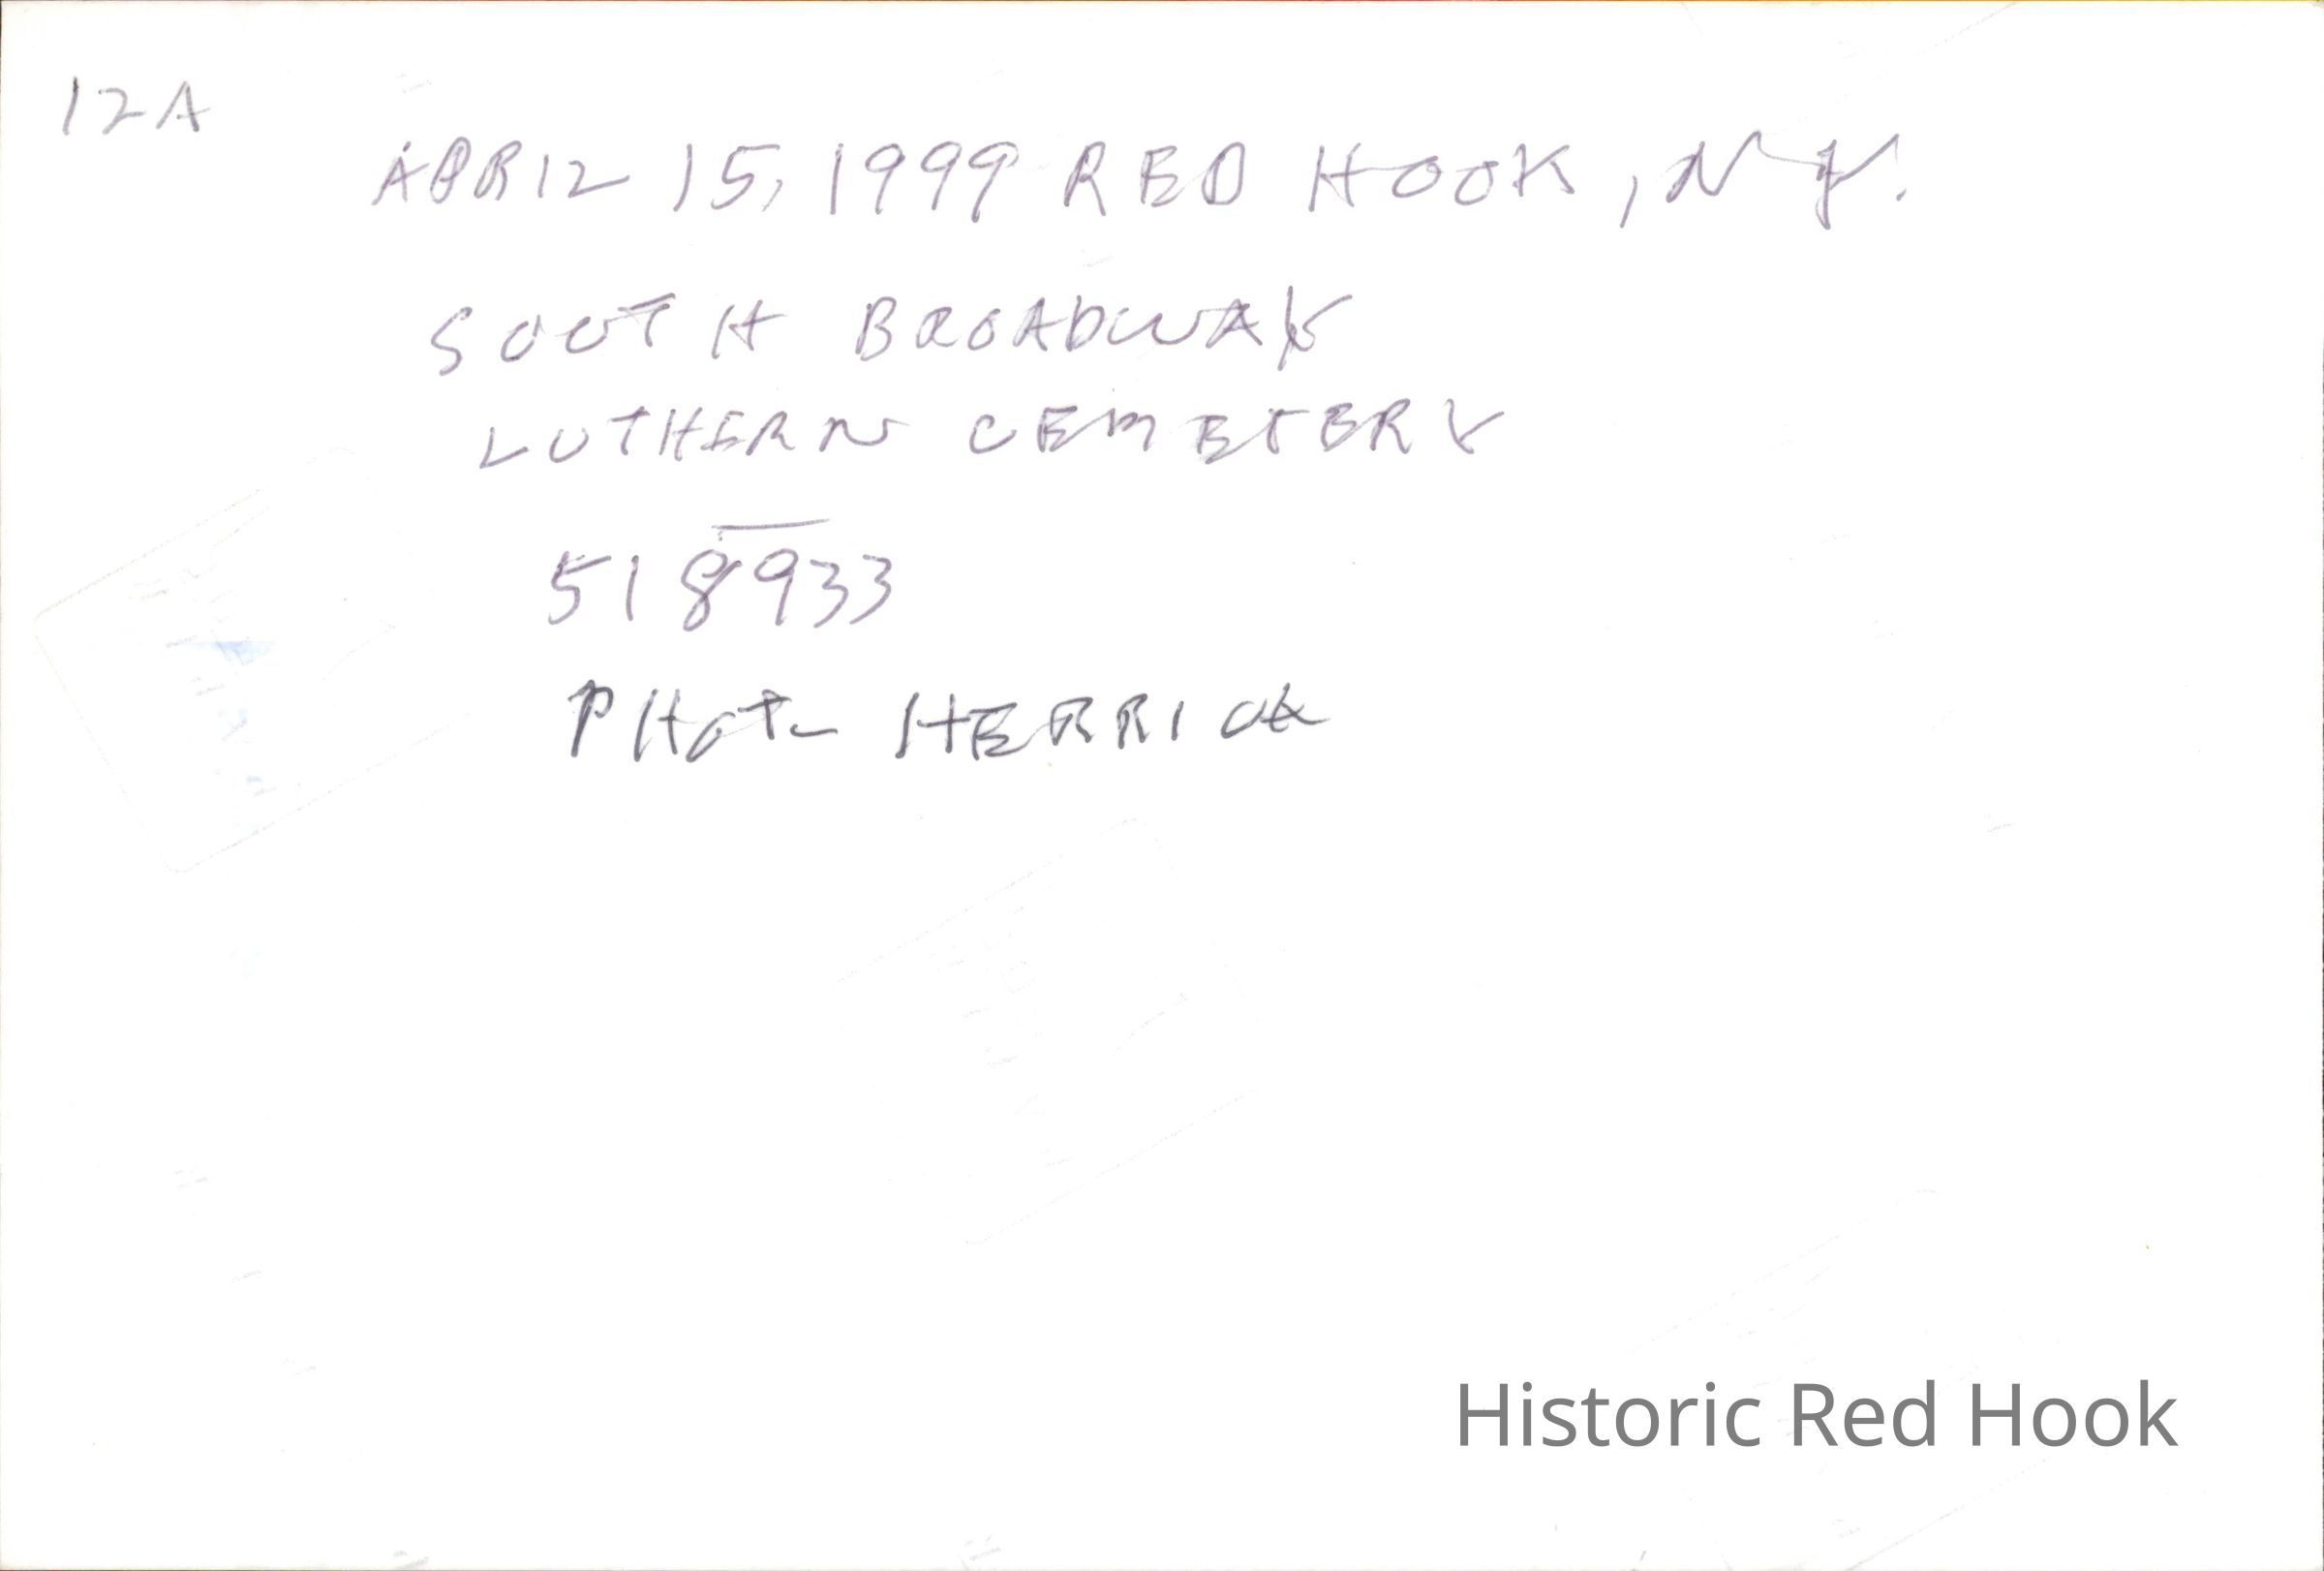 12A
APRIL 15, 1999 RED HOOK, N Y.
SOUTH BROADWAY
LUTHERN CEMETERY
518933
PHOTO HERRICK
Historic Red Hook